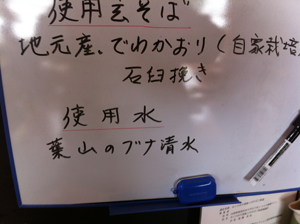 使用玄そば
地元産、でわかおり(自家栽培
石臼挽き
使用水
葉山のブナ清水